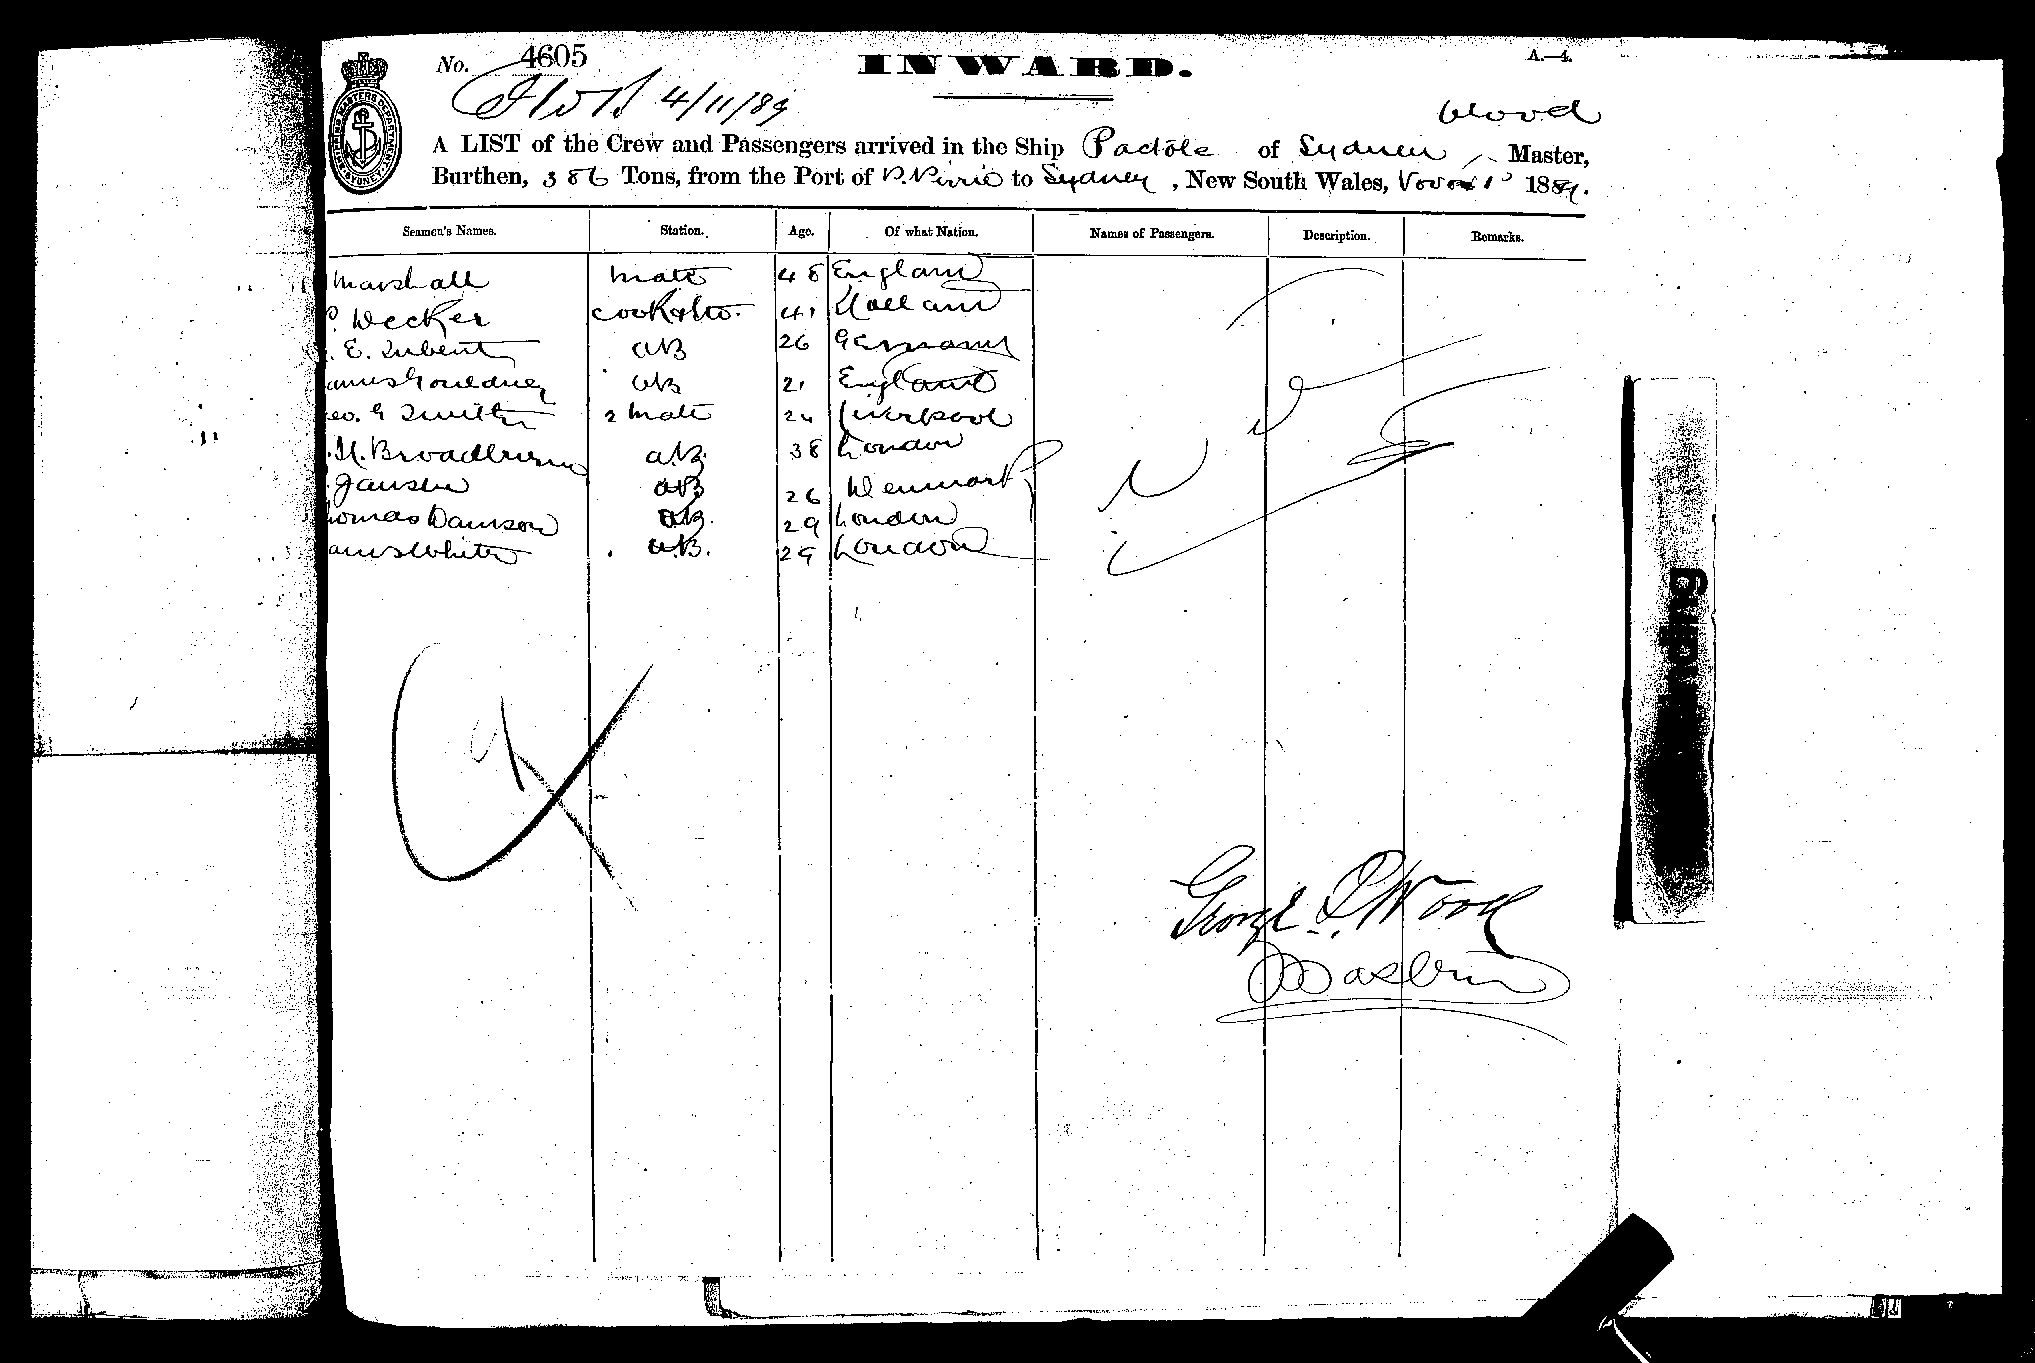 No. 4605
INWARD.
A.—4.
4/11/89
Wood
A LIST of the Crew and Passengers arrived in the Ship Pactole of Sydney, Master,
Burthen, 386 Tons, from the Port of P. Pirie to Sydney, New South Wales, 1889.
SHIPPING MASTERS DEPARTMENT SYDNEY
Seamen's Names. Station. Age. Of what Nation. Names of Passengers. Description. Remarks.
Marshall Mate 48 England
Decker Cook & Stw. 41 Holland
E. AB 26 Germany
ames Gouldney AB 21 England
eo. G Smith 2 Mate 24 Liverpool
H. A.B. 38 London
Jansen AB 26 Denmark
homas Dawson AB. 29 London
ames White A.B. 29 London
George P. Wood